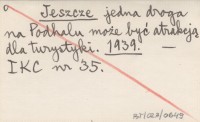 Jeszcze jedna droga
na Podhalu może być atrakcją
dla turystyki. 1939. —
IKC nr 35.